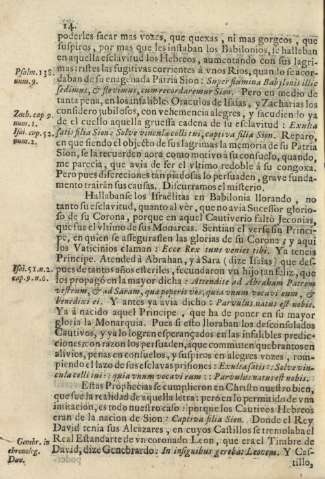 14.
poderles sacar mas vozes, que quexas, ni mas gorgeos, que
suspiros, por mas que les instaban los Babilonios, se hallaban
en aquella esclavitud los Hebreos, aumentando con sus lagri-
mas tristes las fugitivas corrientes à vnos Rios, quando se acor-
Psalm. 138.
num. 9.
daban de su enagenada Patria Sion: Super flumina Babylonis illic
sedimus, & flevimus, cum recordaremur Sion. Pero en medio de
tanta pena, en los infalibles Oraculos de Isaias, y Zacharias los
Zach. cap. 9.
num. 1.
considero jubilosos, con vehemencia alegres, y sacudiendo ya
de el cuello aquella gruessa cadena de su esclavitud: Exulta
Isai. cap. 52.
num. 2.
satis filia Sion: Solve vincula colli tui, captiva filia Sion. Reparo,
en que siendo el objecto de sus lagrimas la memoria de su Patria
Sion, se la recuerden aora como motivo à su consuelo, quando,
me parecia, que avia de ser el vltimo redoble à su congoxa.
Pero pues discreciones tan piadosas lo persuaden, grave funda-
mento traìran sus causas. Discurramos el misterio.
Hallabanse los Israelitas en Babilonia llorando, no
tanto su esclavitud, quanto al vèr, que no avia Sucessor glorio-
so de su Corona, porque en aquel Cautiverio faltò Jeconias,
que fue el vltimo de sus Monarcas. Sentian el verse sin Princi-
pe, en quien se assegurassen las glorias de su Corona; y aqui
los Vaticinios claman: Ecce Rex tuus veniet tibi. Ya teneis
Principe. Atended à Abrahan, y à Sara (dize Isaias) que des-
Isai. 51. n. 2.
cap. 9. n. 6.
pues de tantos años esteriles, fecundaron vn hijo tan feliz, que
los propagò en la mayor dicha: Attendite ad Abraham Patrem
vestrum, & ad Saram, quæ peperit vos, quia vnum vocavi eum, &
benedixi ei. Y antes ya avia dicho: Parvulus natus est nobis.
Ya à nacido aquel Principe, que ha de poner en su mayor
gloria la Monarquia. Pues si esto lloraban los desconsolados
Cautivos, y ya lo logran esperançados en las infalibles predic-
ciones; con razon los persuaden, à que commuten quebrantos en
alivios, penas en consuelos, y suspiros en alegres vozes, rom-
piendo el lazo de sus esclavas prisiones: Exulta satis: Solve vin-
cula colli tui: quia vnum vocavi eum: Parvulus natus est nobis.
Estas Prophecias se cumplieron en Christo nuestro bien,
que fue la realidad de aquella letra: pero en lo permitido de vna
imitacion, es todo nuestro caso; porque los Cautivos Hebreos
eran de la nacion de Sion: Captiva filia Sion. Donde el Rey
David tenia sus Alcazares, en cuyos Castillos se tremolaba el
Genebr. in
chronolog.
Dav.
Real Estandarte de vn coronado Leon, que era el Timbre de
David, dize Genebrardo: In insignibus gerebat Leonem. Y Cas-
tillo,